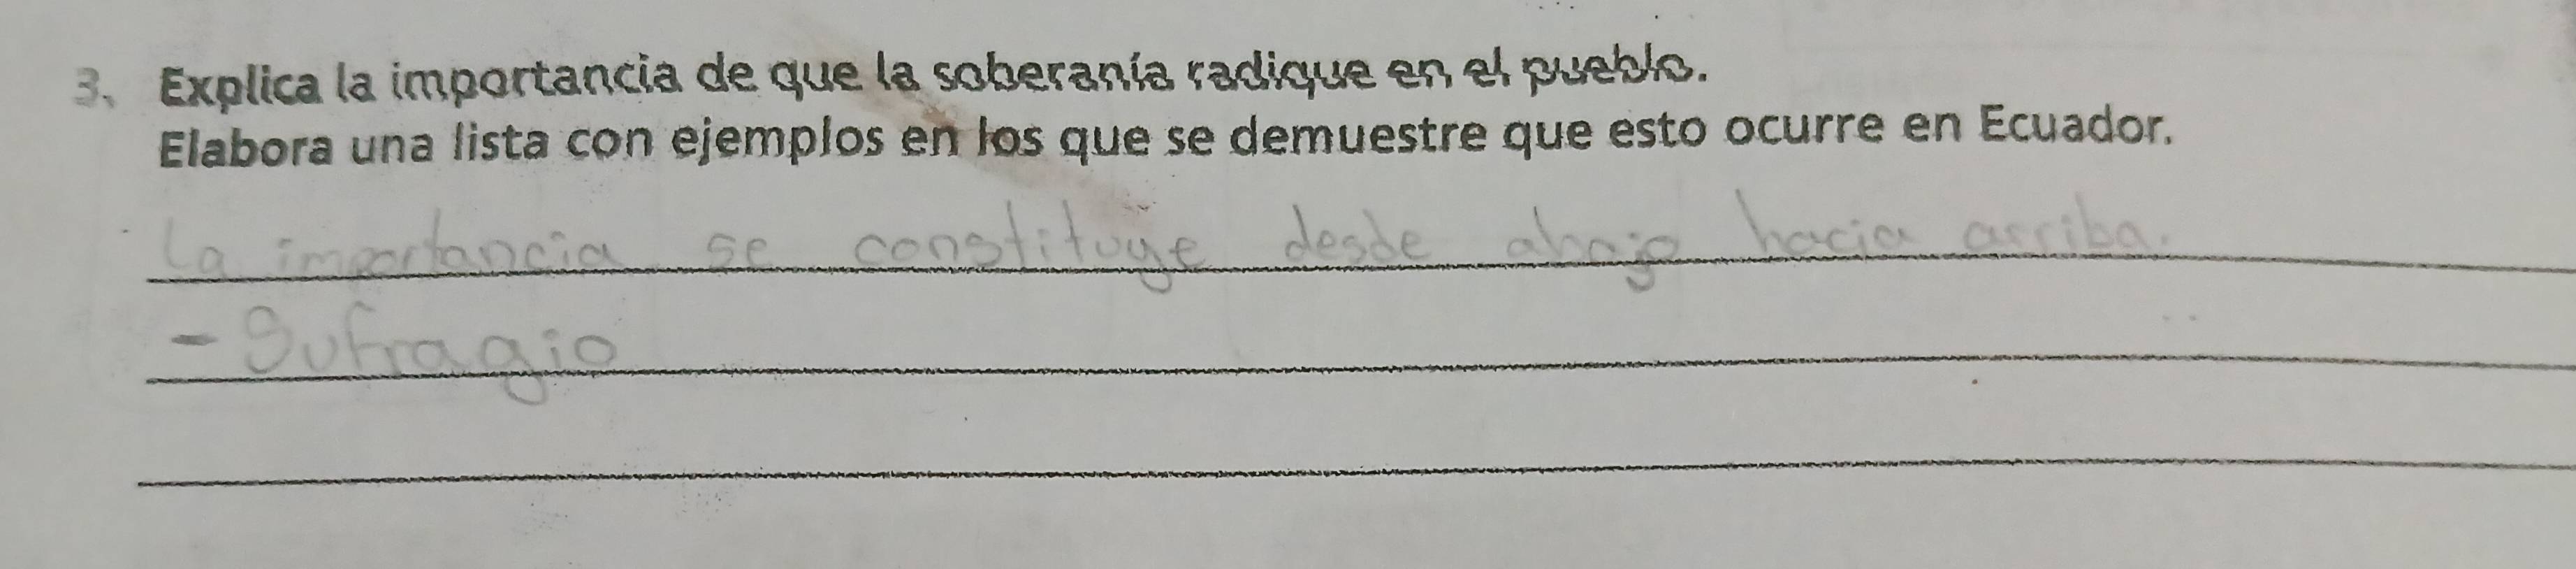 3. Explica la importancia de que la soberanía radique en el pueblo.
Elabora una lista con ejemplos en los que se demuestre que esto ocurre en Ecuador.
La importancia se constituye desde abajo hacia arriba.
- Sufragio